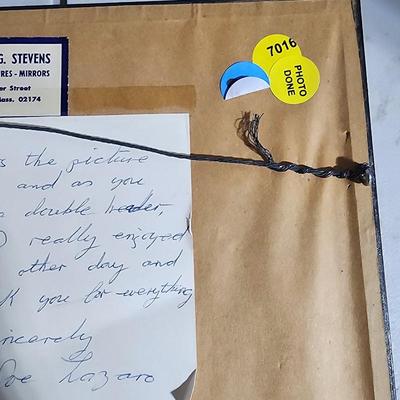 G. STEVENS
RES - MIRRORS
er Street
ass. 02174
7016
PHOTO
DONE
s the picture
and as you
double header,
really enjoyed
other day and
k you for everything
ncerely
oe Lazaro